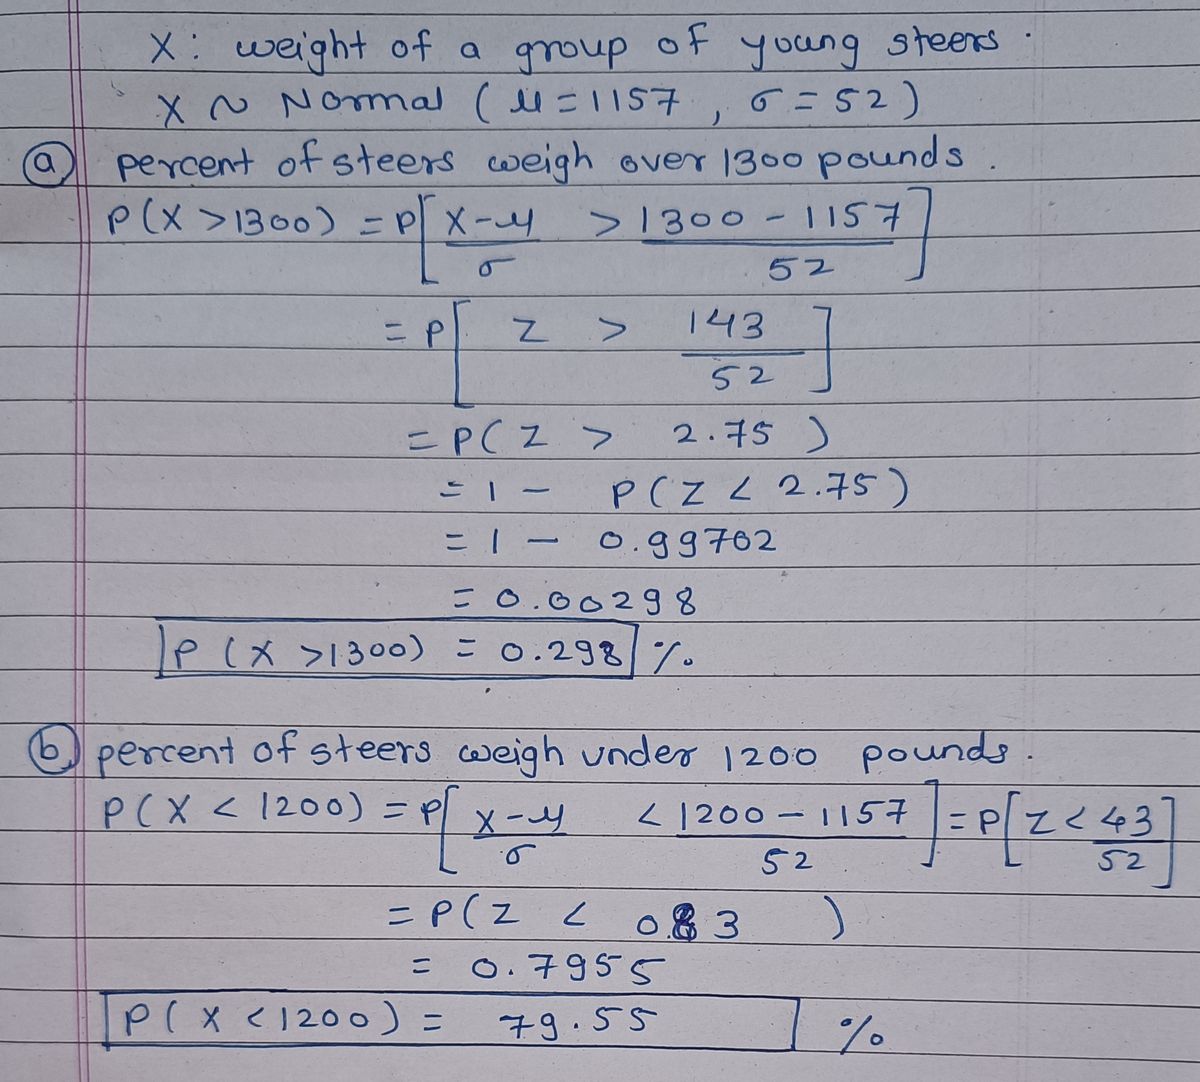 X : weight of a group of young steers .
X ~ Normal ( μ = 1157 , σ = 52 )
(a) percent of steers weigh over 1300 pounds .
P(X > 1300) = P[ (X-μ)/σ > (1300 - 1157)/52 ]
= P[ Z > 143/52 ]
= P( Z > 2.75 )
= 1 - P( Z < 2.75 )
= 1 - 0.99702
= 0.00298
P (X > 1300) = 0.298 %
(b) percent of steers weigh under 1200 pounds .
P(X < 1200) = P[ (X-μ)/σ < (1200 - 1157)/52 ] = P[ Z < 43/52 ]
= P( Z < 0.83 )
= 0.7955
P( X < 1200 ) = 79.55 %